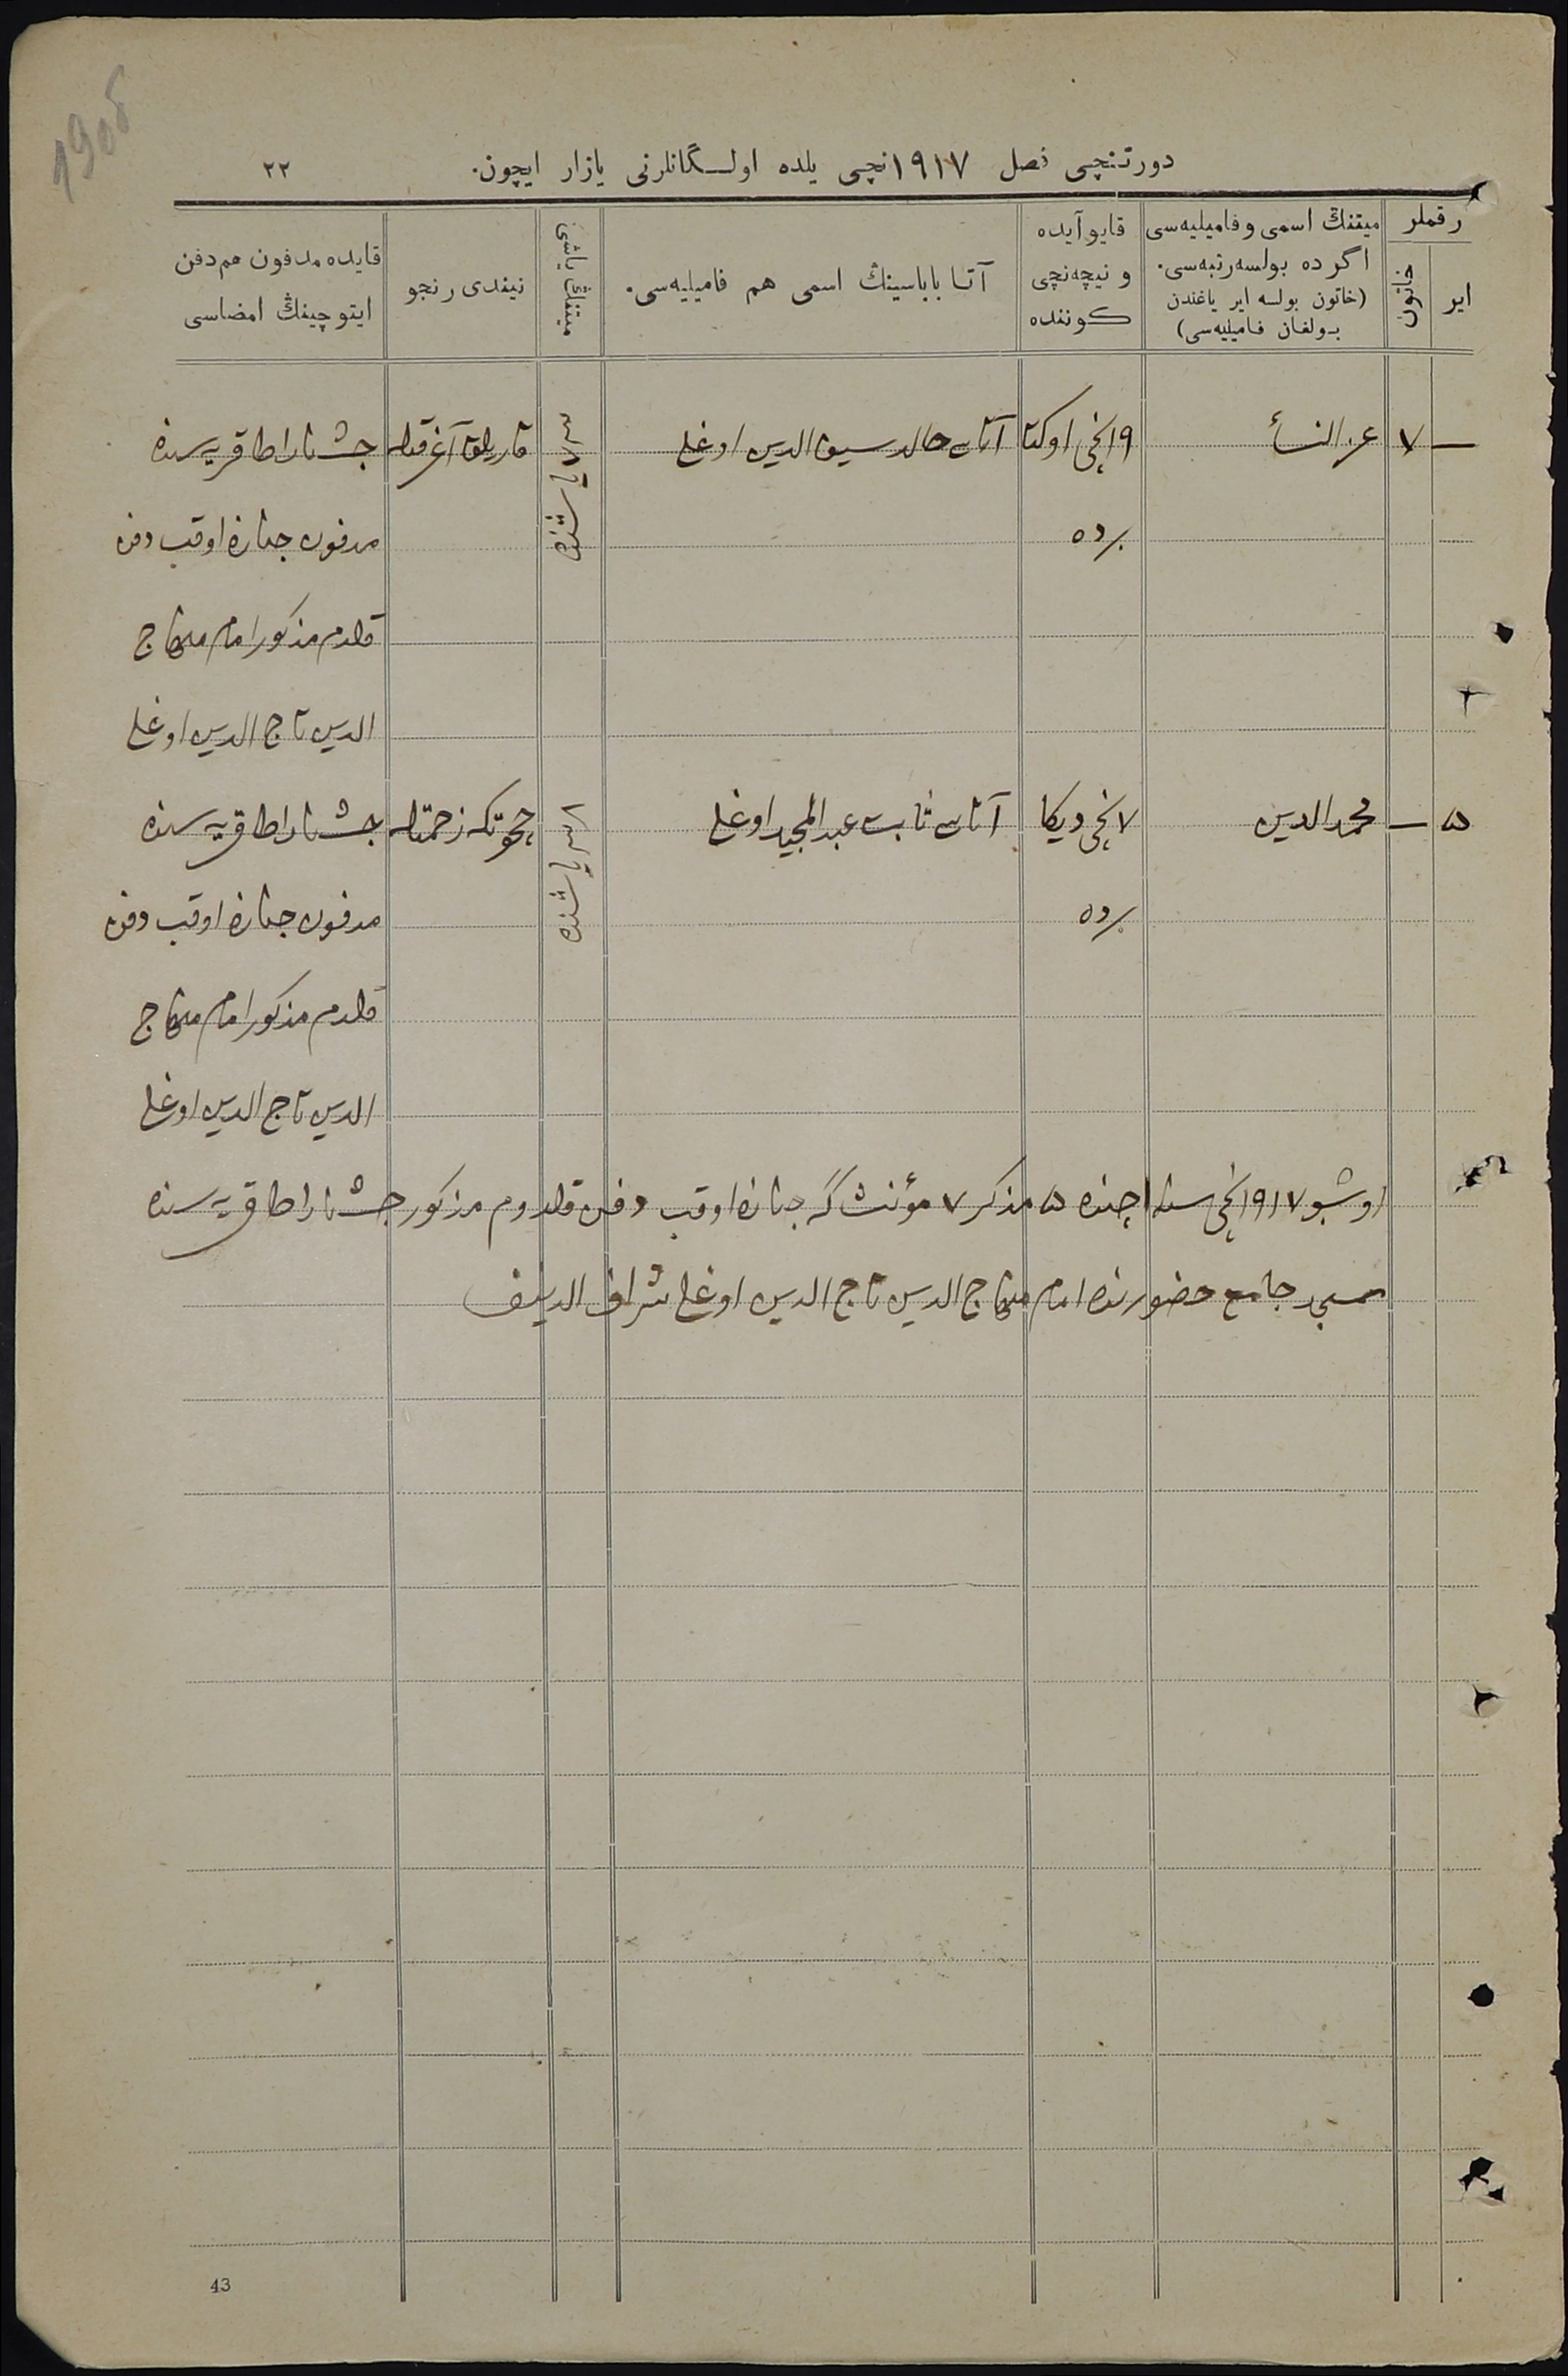 190б
دورتنچی فصل ۱۹۱۷نچی یلده اولـگانلرنی یازار ایچون.
۲۲
رقملر
ایر
خاتون
میتنڭ اسمی و فامیلیه‌سی
اگر ده بولسه رتبه‌سی.
(خاتون بولسه ایر یاغندن
بـولغان فامیلیه‌سی)
قایو آیده
و نیچه‌نچی
کوننده
آتـا باباسینڭ اسمی هم فامیلیه‌سی.
میتنڭ یاشی
نیندی رنجو
قایده مدفون هم دفن
ایتوچینڭ امضاسی
— ۷ عز النسأ ۱۹نچی اوکتا آتاسی خالد سیف الدین اوغلی یاشنده قارېلق آغرقیله قریه‌سنده
برده مدفون جنازه اوقب دفن
قلدم مذکور امام منهاج
الدین تاج الدین اوغلی
۵ — محمد الدین ۷نچی دیکا آتاسی ثابت عبد المجید اوغلی یاشنده چحوتکه زحمتیله قریه‌سنده
برده مدفون جنازه اوقب دفن
قلدم مذکور امام منهاج
الدین تاج الدین اوغلی
اوشبو ۱۹۱۷نچی سنه اچنده ۵ مذکر ۷ مؤنث گه جنازه اوقب دفن قلدوم مذکور قریه‌سنده
مسجد جامع حضورنده امام منهاج الدین تاج الدین اوغلی شراف الدینف
43